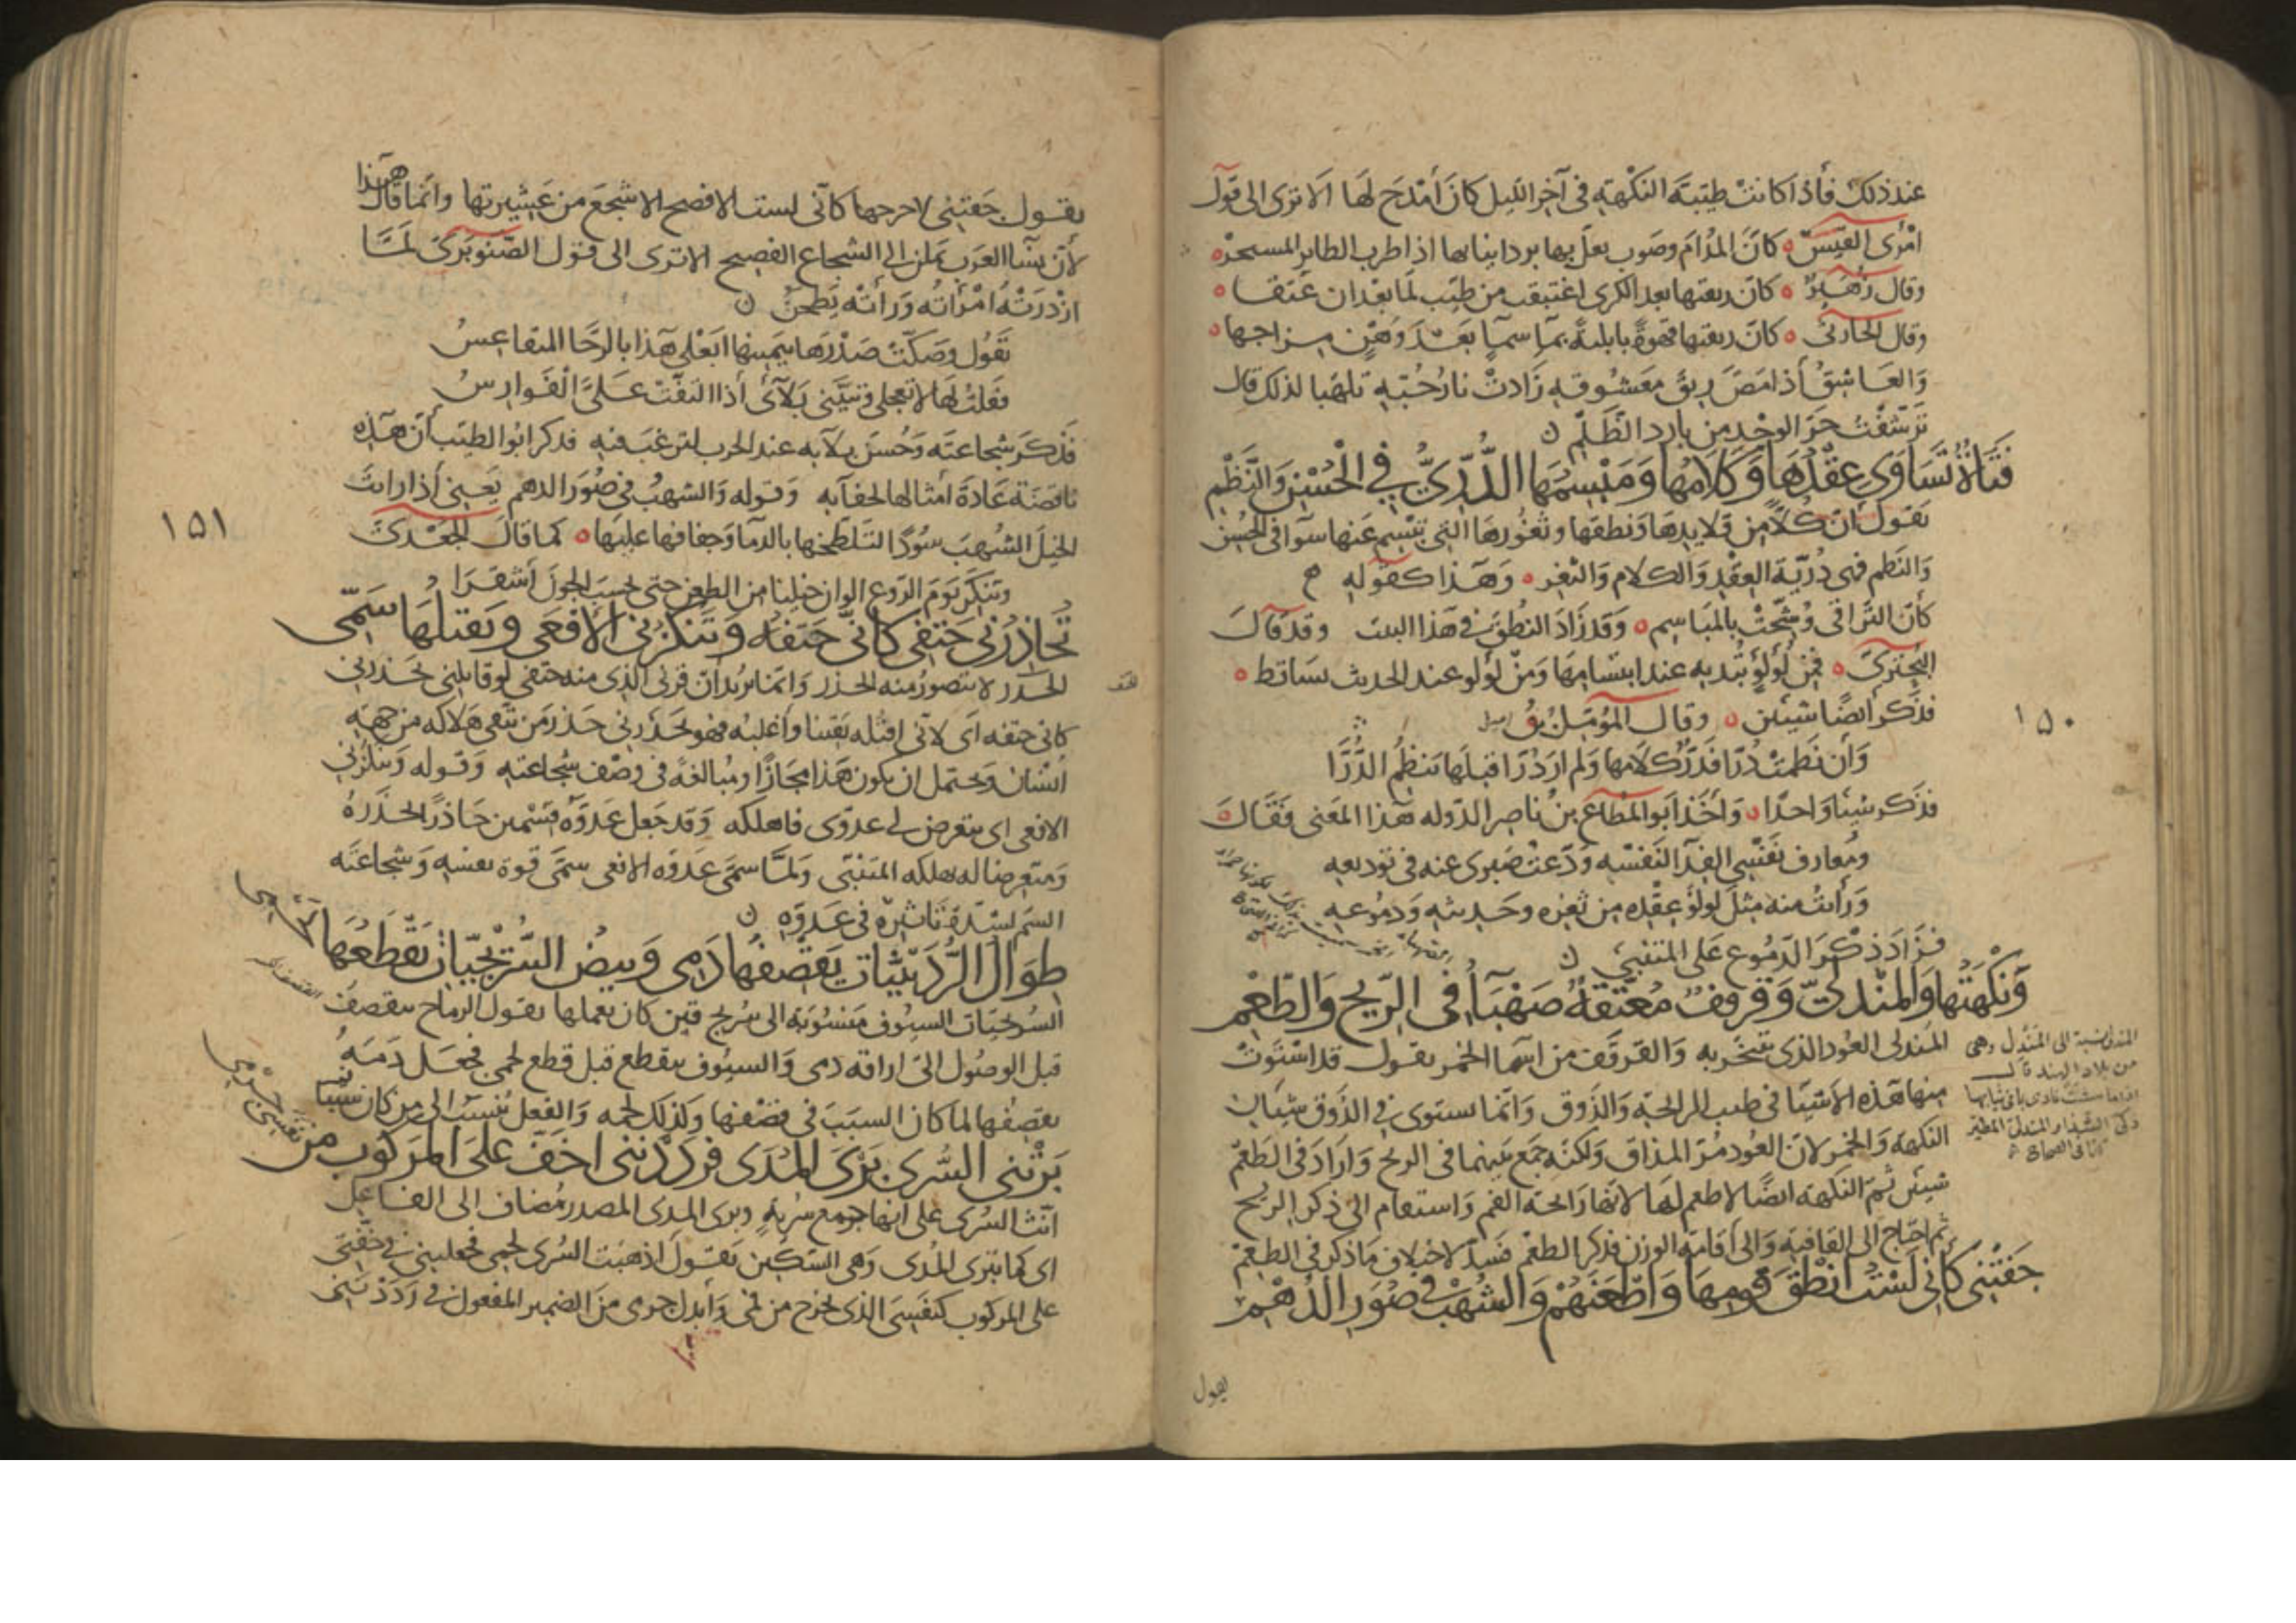 عند ذلك فأذا كانت طيبة النكهة في آخر الليل كان أمدح لها الا ترى الى قول
امرى القيس كان المدام وصوب يعل بها برد انيابها اذا طرب الطاير المستحر
وقال زهير كان ريقتها بعد الكرى اغتبقت من طيب لما بعد ان عتقا
وقال كان ريقتها قهوة بابلية بماء سماء بعد وهن مزاجها
والعاشق أذا مص ريق معشوقه زادت نار حبه تلهبا لذلك قال
ترشفت حر الوجد من بارد الظلم
فتاة تساوى عقدها وكلامها ومبسمها الدرى في الحسن والنظم
يقول أن كلا من قلايدها ونطقها وثغورها التي تبتسم عنها سوآ في الحسن
والنظم فهى درية العقد والكلام والثغر وهذا كقوله
كأن التراقى وشحت بالمباسم وقد زاد النطق في هذا البيت وقد قال
البحترى فمن لؤلؤ تبديه عند ابتسامها ومن لولو عند الحديث تساقط
فذكر ايضا شيئين وقال المؤمل بن
وان نظمت درا فدر كلامها ولم ار درا قبلها تنظم الدررا
فذكر شيئا واحدا وأخذ ابو المطاع بن ناصر الدوله هذا المعنى فقال
ومفارق نفسي الفدآ لنفسه ودعت صبرى عنه في توديعه
ورأيت منه مثل لولؤ عقده من ثغره وحديثه ودموعه
فزاد ذكر الدموع على المتنبي
ونكهتها والمندلى وقرقف معتقة صهبآ في الريح والطعم
المندلى العود الذى يتبخر به والقرقف من اسما الخمر يقول قد استوت
منها هذه الاشيآ في طيب الرايحة والذوق وانما يستوى في الذوق شيآن
النكهة والخمر لان العود مر المذاق ولكنه جمع بينهما في الريح واراد في الطعم
شيئين ثم النكهة ايضا لا طعم لها لانها رايحة الفم واستقام الى ذكر الريح
ثم احتاج الى القافية والى اقامة الوزن فذكر الطعم فسد لاختلاف ما ذكر في الطعم
جفتني كاني لست انطق قومها واطعنهم والشهب في صور الدهم
المندلى نسبة الى المندل وهى
من بلاد الهند قال
اذا ما مشت نادى بما في ثيابها
ذكى الشذا والمندلى المطير
كذا في الصحاح
١٥٠
يقول
يقول جفتني لاحرجها كأني لست الافصح الاشجع من عشيرتها وانما قال هذا
لأن نسآ العرب يملن الى الشجاع الفصيح الا ترى الى قول الصنوبرى لما
ازدرته امرأته ورأته يطحن
تقول وصكت صدرها بيمينها ابعلى هذا بالرحا المتقاعس
فقلت لها لا تعجلى وتبيني بلآئى أذا التفت على الفوارس
فذكر شجاعته وحسن بلآيه عند الحرب لترغب فيه فذكر ابو الطيب أن هذه
ناقضة عادة أمثالها لجفآيه وقوله والشهب في صور الدهم يعني أذا رايت
الخيل الشهب سودا لتلطخها بالدمآ وجفافها عليها كما قال الجعدى
وتنكر يوم الروع الوان خيلنا من الطعن حتى تحسب الجون أشقرا
تحاذرني حتفى كاني حتفه وتنكزني الافعى ويقتلها سمى
الحذر لا يتصور منه الحذر وانما يريد ان قرني الذى منه حتفى لو قابلني يحذرني
كاني حتفه اى لاني اقتله يقينا واغلبه فهو يحذرني حذر من يتقى هلاكه من جهة
انسان ويحتمل ان يكون هذا مجازا ومبالغة في وصف شجاعته وقوله وتنكزني
الافعى اى يتعرض لي عدوى فاهلكه وقد جعل عدوه قسمين حاذرا لحذره
ومتعرضا له يهلكه المتنبى ولما سمى عدوه الافعى سمى قوة نفسه وشجاعته
السم لشدة تاثيره في عدوه
طوال الردينيات يقصفها دمى وبيض السريجيات يقطعها لحمى
السريجيات السيوف منسوبة الى سريج قين كان يعملها يقول الرماح تتقصف
قبل الوصول الى اراقة دمى والسيوف تتقطع قبل قطع لحمى فجعل دمه
يقصفها لما كان السبب في قصفها وكذلك لحمه والفعل ينسب الى من كان سببا
برتني السرى برى المدى فرددنني اخف على المركوب من نفسى جرمى
انث السرى على انها جمع سرية وبرى المدى المصدر مضاف الى الفاعل
اى كما تبرى المدى وهى السكين يقول اذهبت السرى لحمى فجعلنني في خفتي
على المركوب كنفسى الذى يخرج من فمى وابدل جرمى من الضمير المفعول في رددنني
١٥١